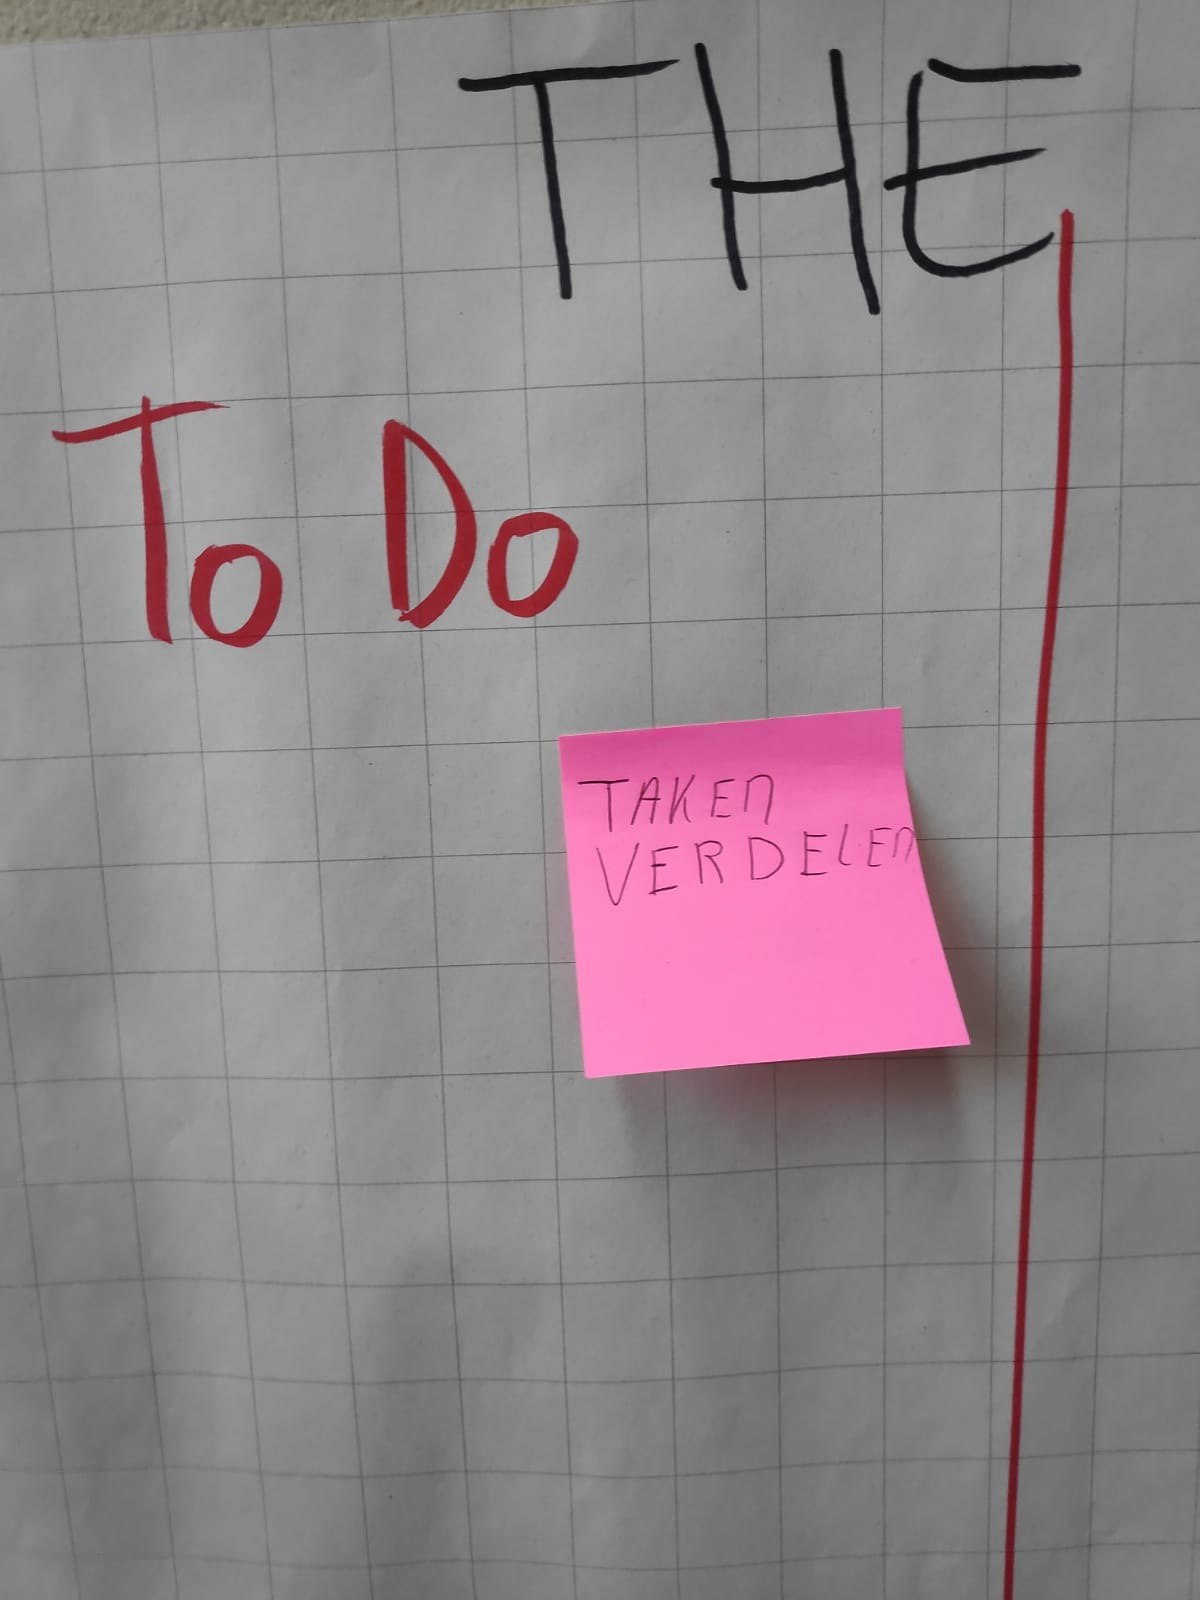 THE
To Do
TAKEN
VERDELEN